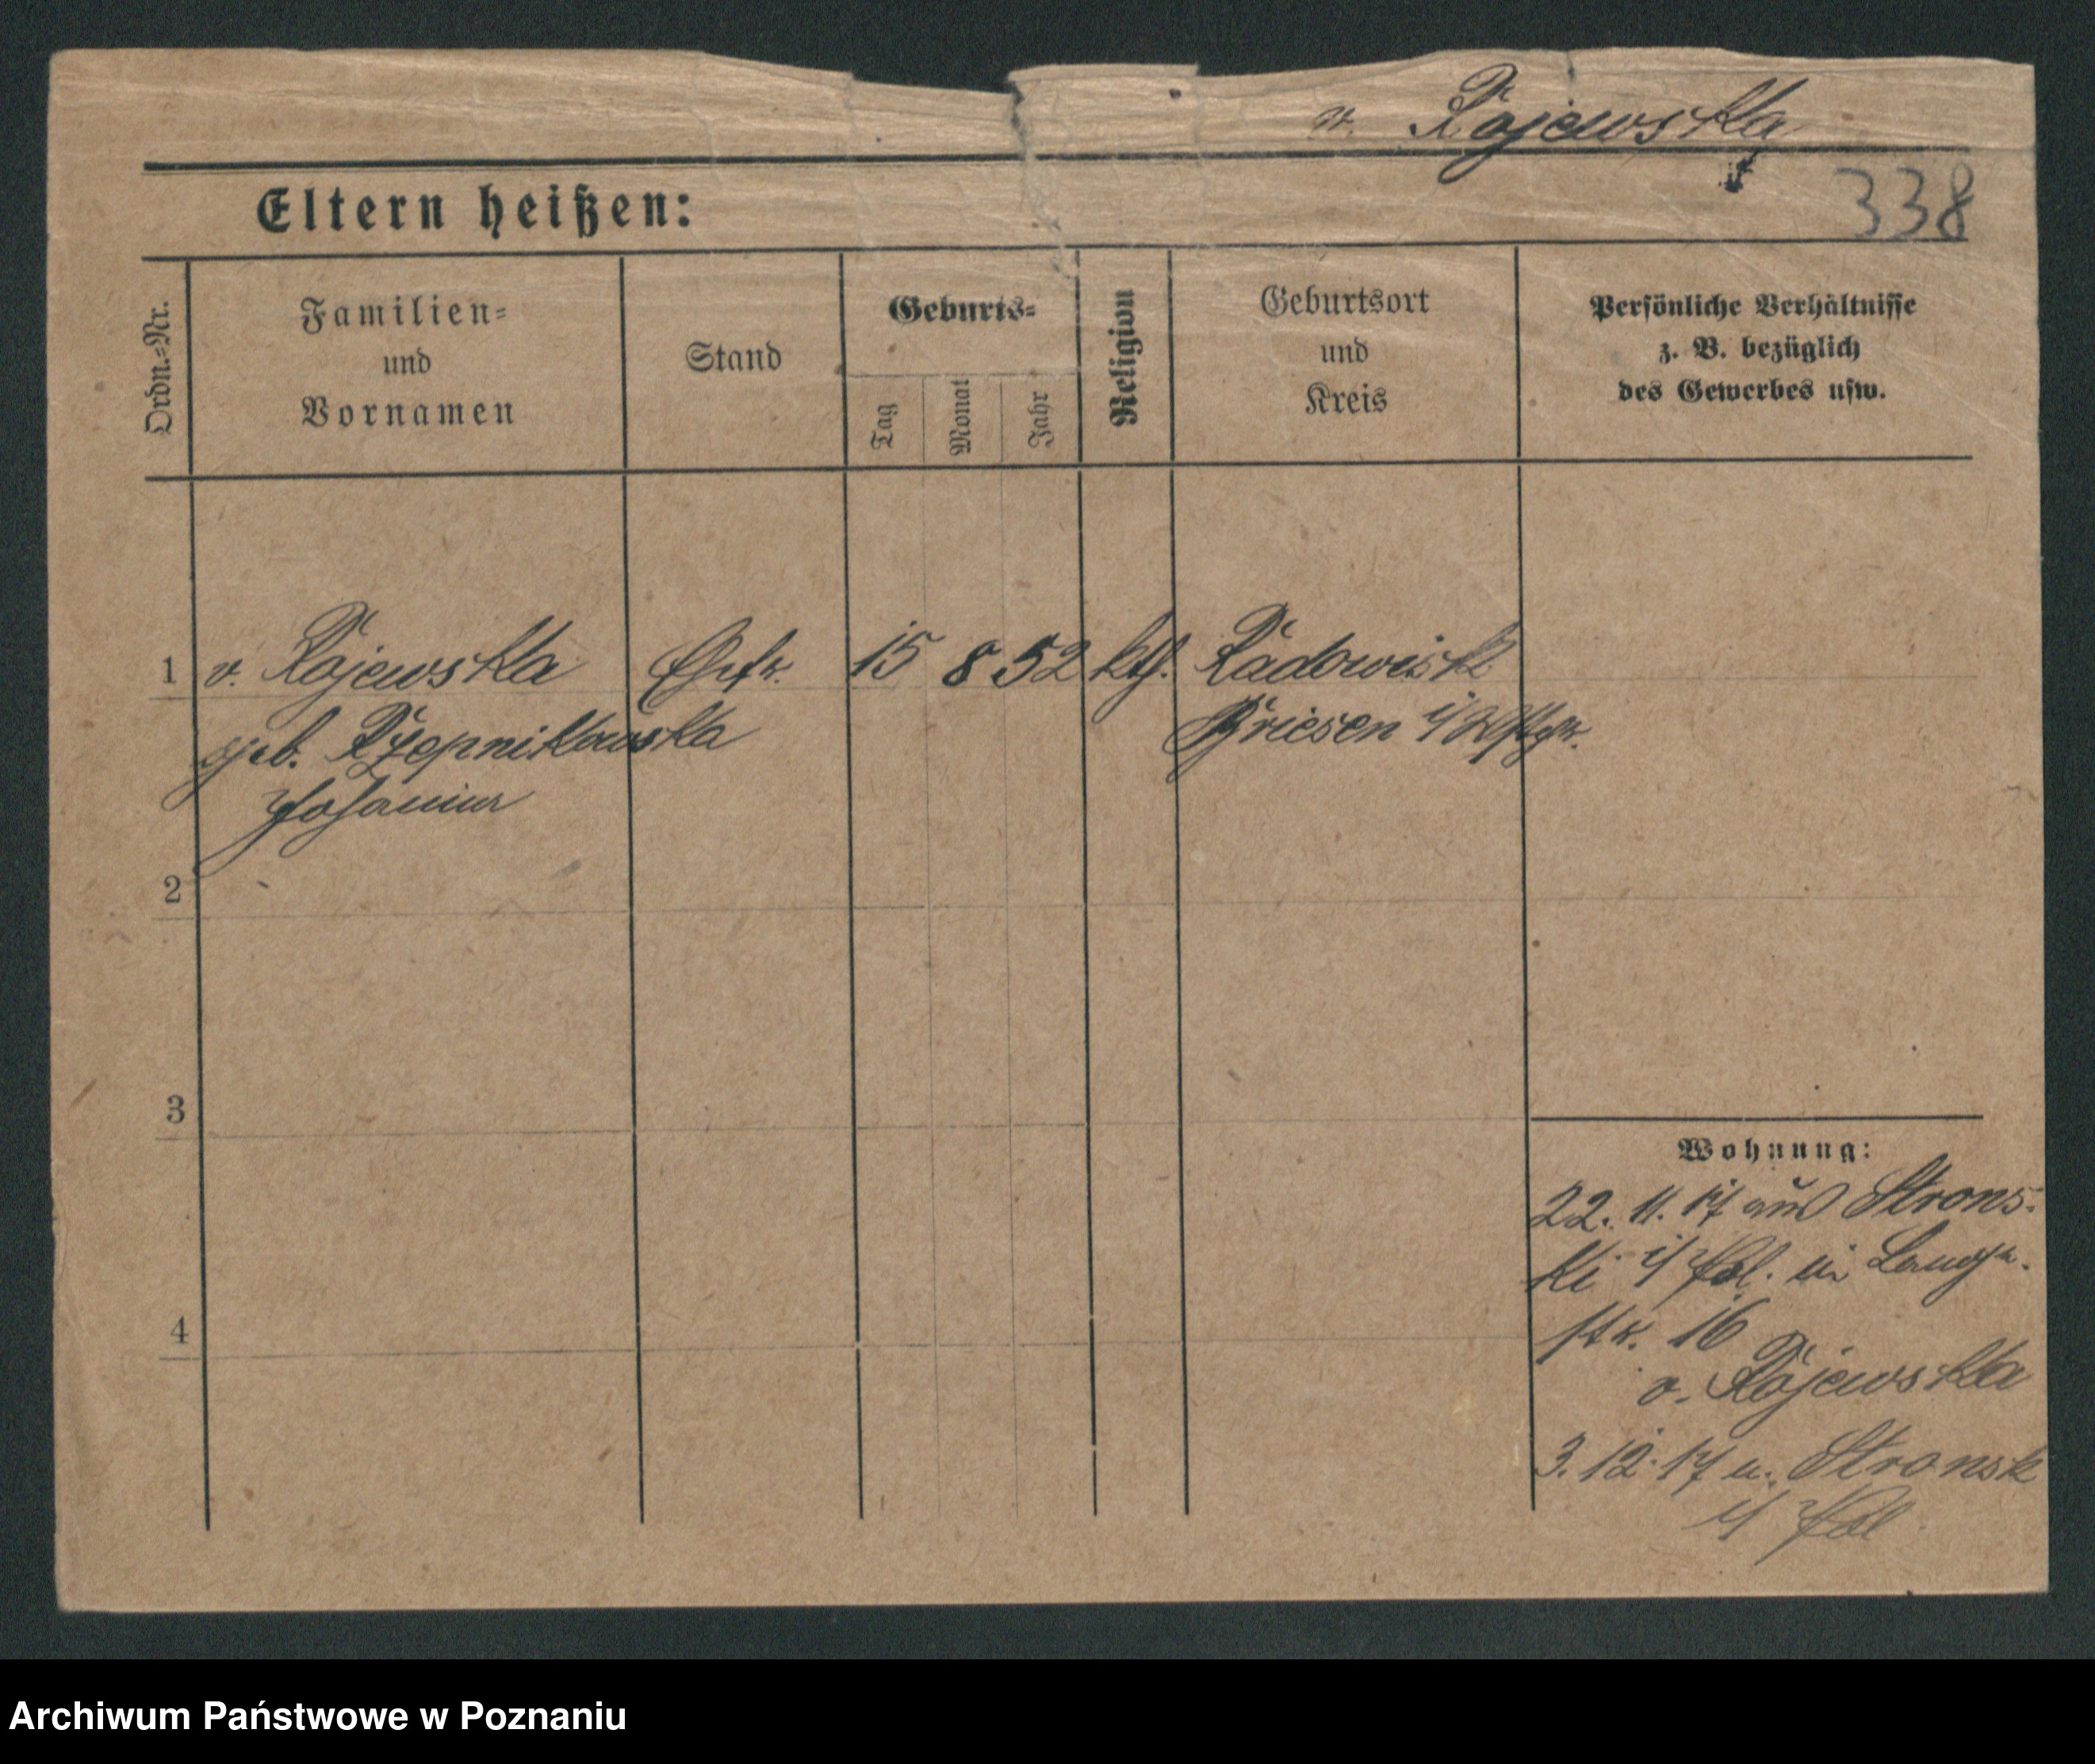 v. Rojewska
338
Eltern heißen:
Ordn.=Nr.
Familien=
und
Vornamen
Stand
Geburts=
Tag
Monat
Jahr
Religion
Geburtsort
und
Kreis
Persönliche Verhältnisse
z. B. bezüglich
des Gewerbes usw.
1 v. Rojewska Ehefr. 15 8 52 kth. Radowisk
geb. Rzepnikowska Briesen i/ Wstpr.
Johanna
2
3
4
Wohnung:
22. 11. 17 aus Strons-
ki i/ Pol. in Langen
str. 16
v. Rojewska
3. 12. 17 n. Stronsk
i/ Pol
Archiwum Państwowe w Poznaniu